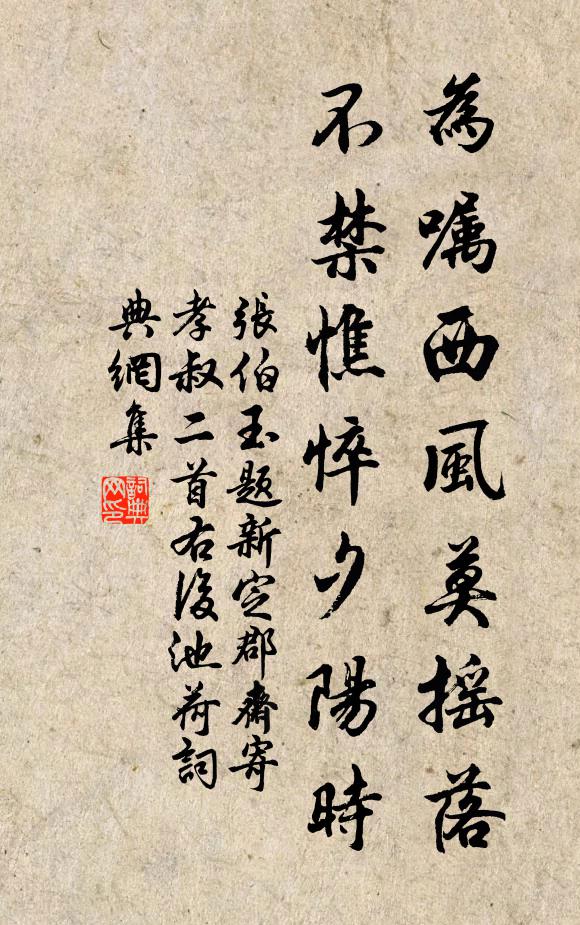 為嘱西風莫摇落
不禁憔悴夕陽時
張伯玉題新定郡齋寄
孝叔二首右後池荷詞
典網集
詞典
网印